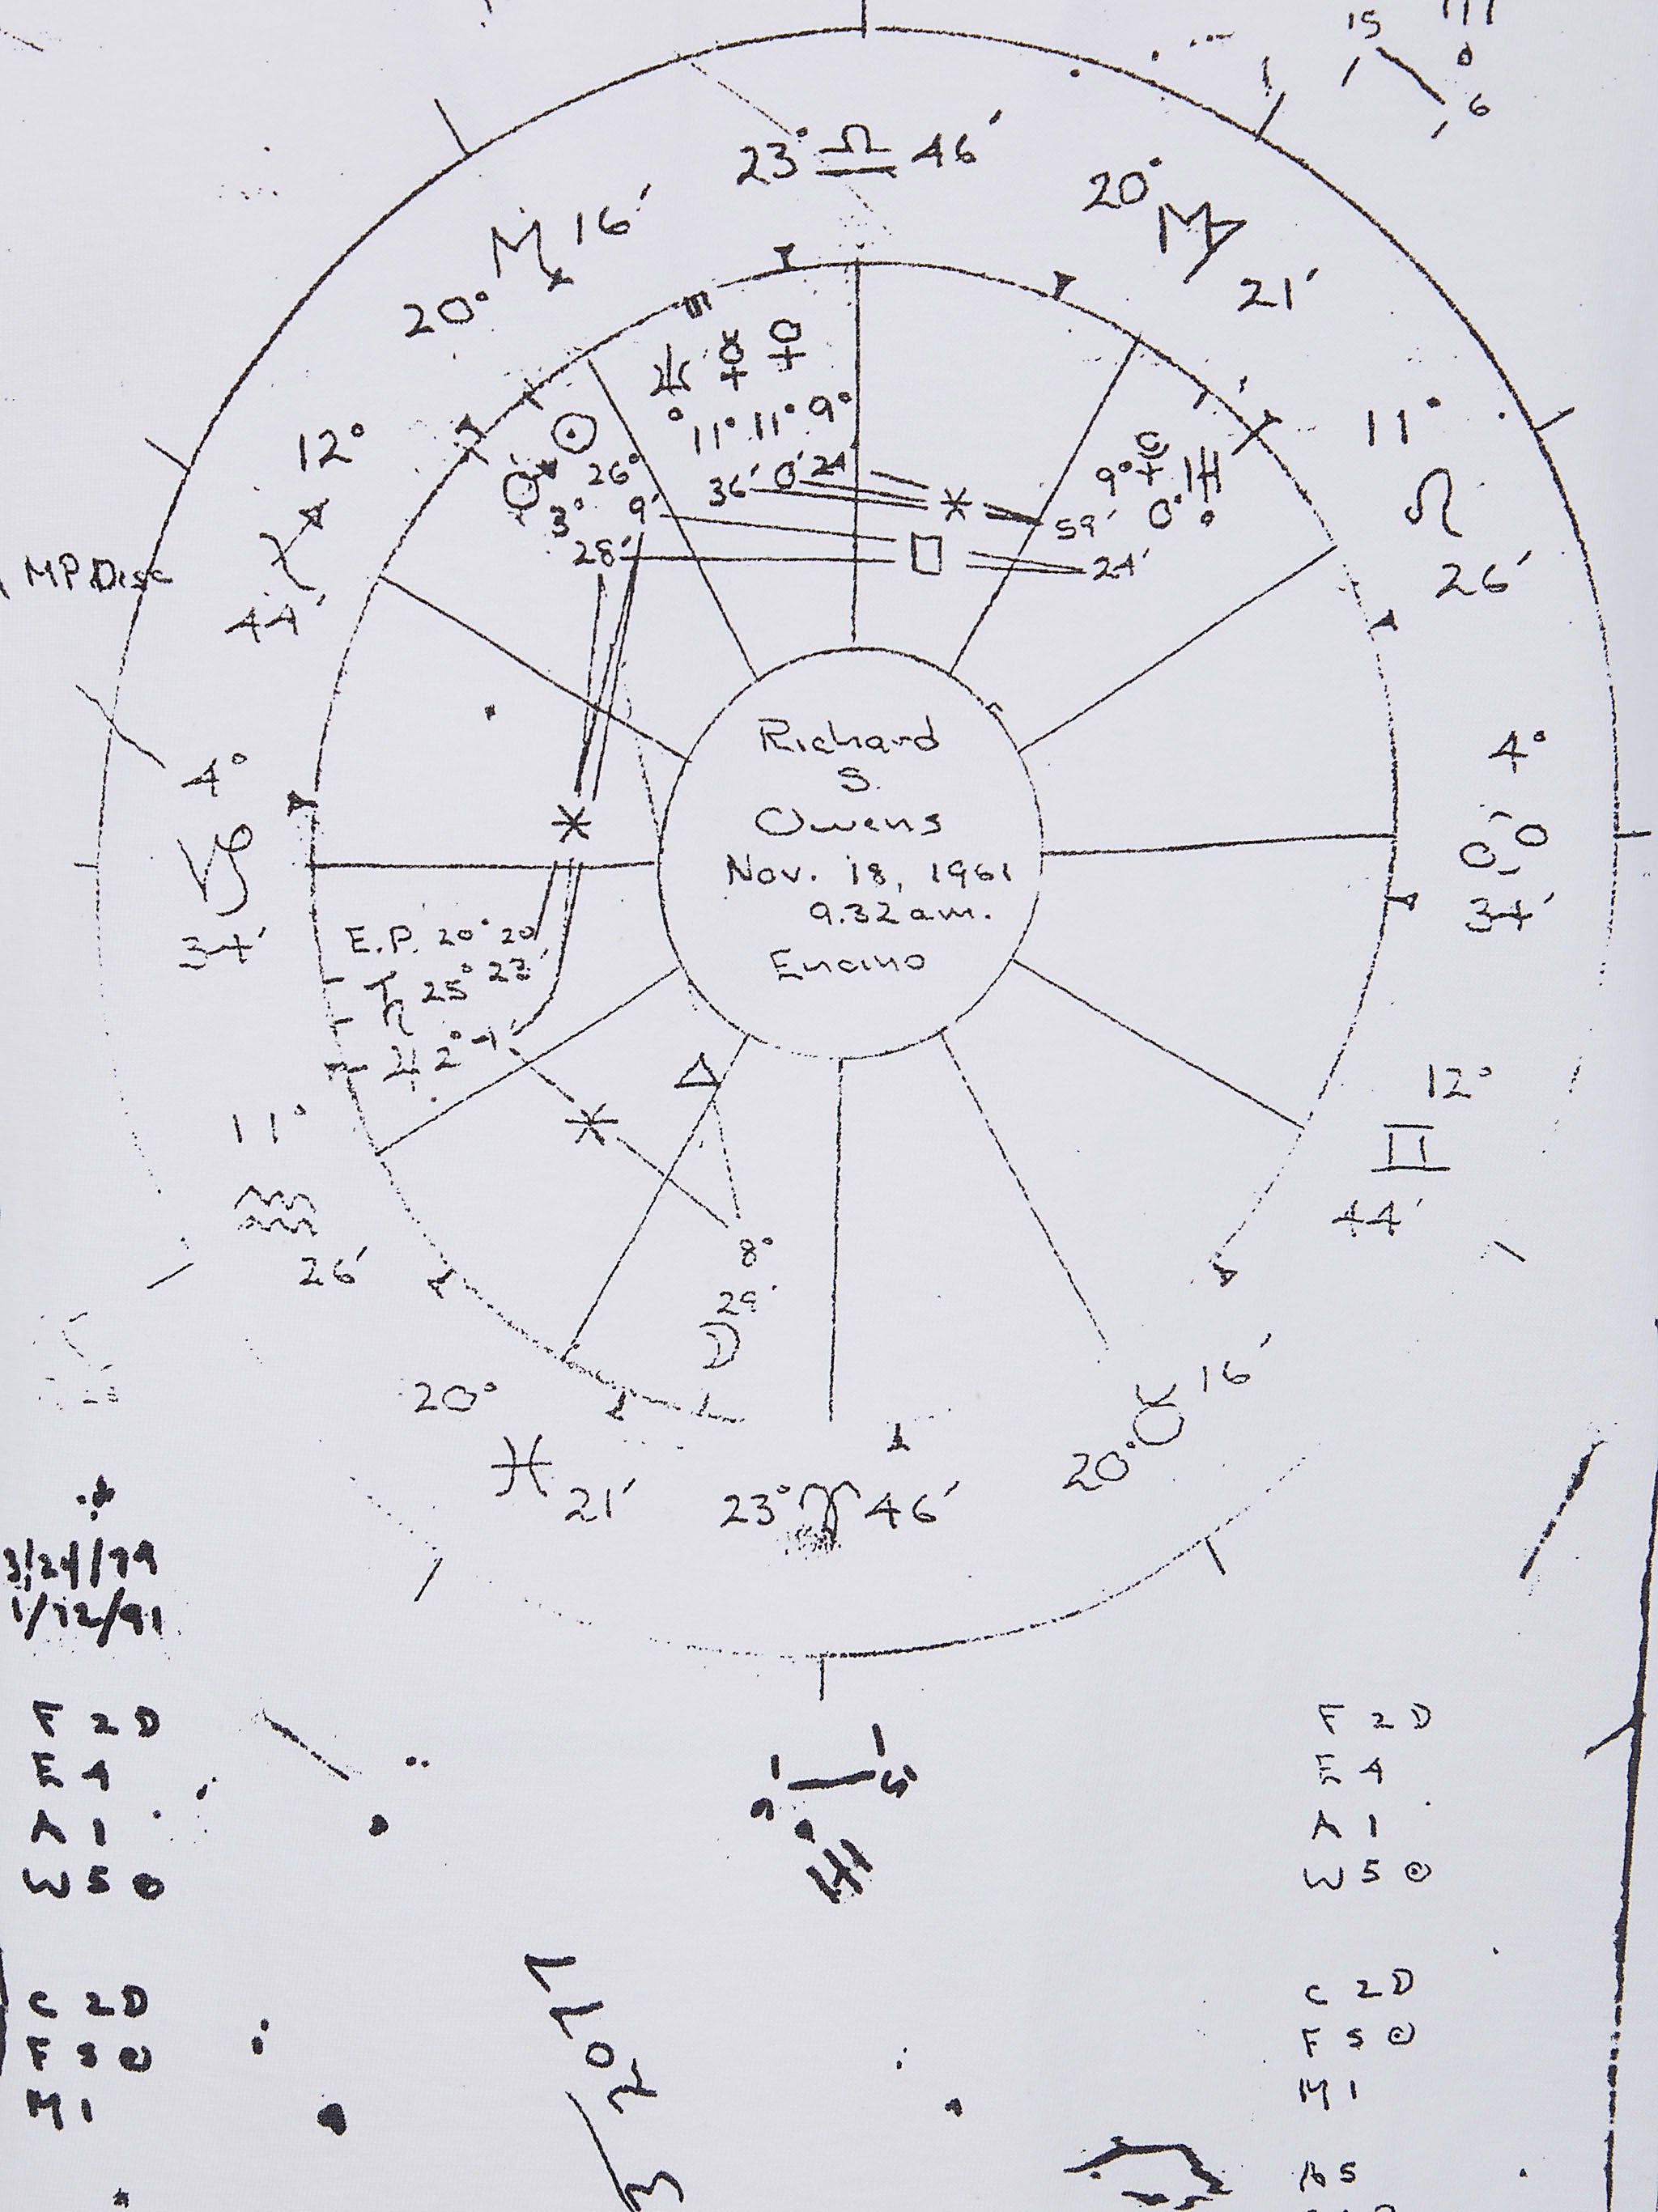 15
6
23° ♎ 46′
20° ♍ 21′
♏ 16′
20°
12° ♐ 44′
11° ♌ 26′
MP Disc
♆ ☿ ♀
11° 11° 9°
36′ 0′ 24′
☉
♂ 26°
3° 9′
28′
9° ♇ ♅
0°
59′
24′
4° ♑ 34′
4° ♋ 34′
Richard
S.
Owens
Nov. 18, 1961
9.32 am.
Encino
E.P. 20° 20′
♄ 25° 22′
♃ 2° 1′
11° ♒ 26′
12° ♊ 44′
8°
29′
☽
20° ♓ 21′
23° ♈ 46′
20° ♉ 16′
3/24/79
1/12/91
F 2 D
E 4
A 1
W 5 ☉
C 2 D
F 5 ☉
M 1
F 2 D
E 4
A 1
W 5 ☉
C 2 D
F 5 ☉
M 1